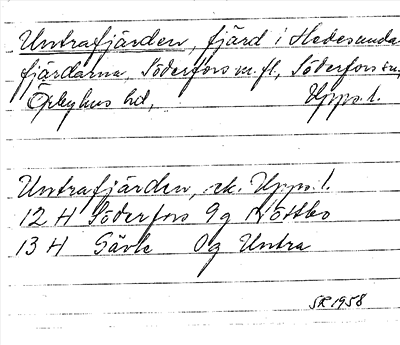 Untrafjärden, fjärd i Hedesunda-
fjärdarna, Söderfors m. fl., Söderfors sn,
Örbyhus hd, Upps. l.
Untrafjärden, ek. Upps. l.
12 H Söderfors 9g Kottbo
13 H Gävle 0g Untra
SR 1958